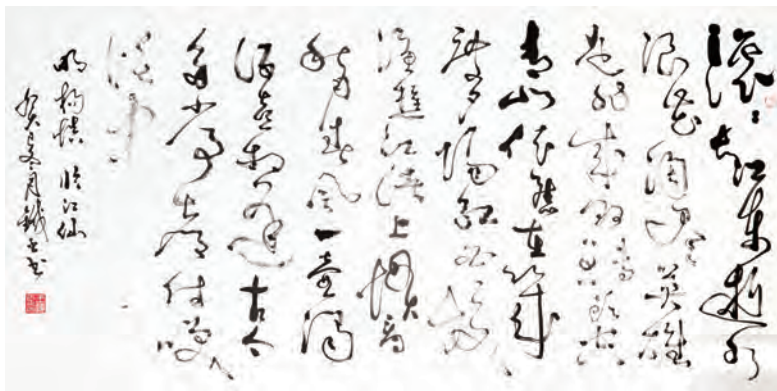 滚滚长江东逝水
浪花淘尽英雄
是非成败转头空
青山依旧在几
度夕阳红白发
渔樵江渚上惯看
秋月春风一壶浊
酒喜相逢古今
多少事都付笑
谈中
明杨慎临江仙
冬月 书